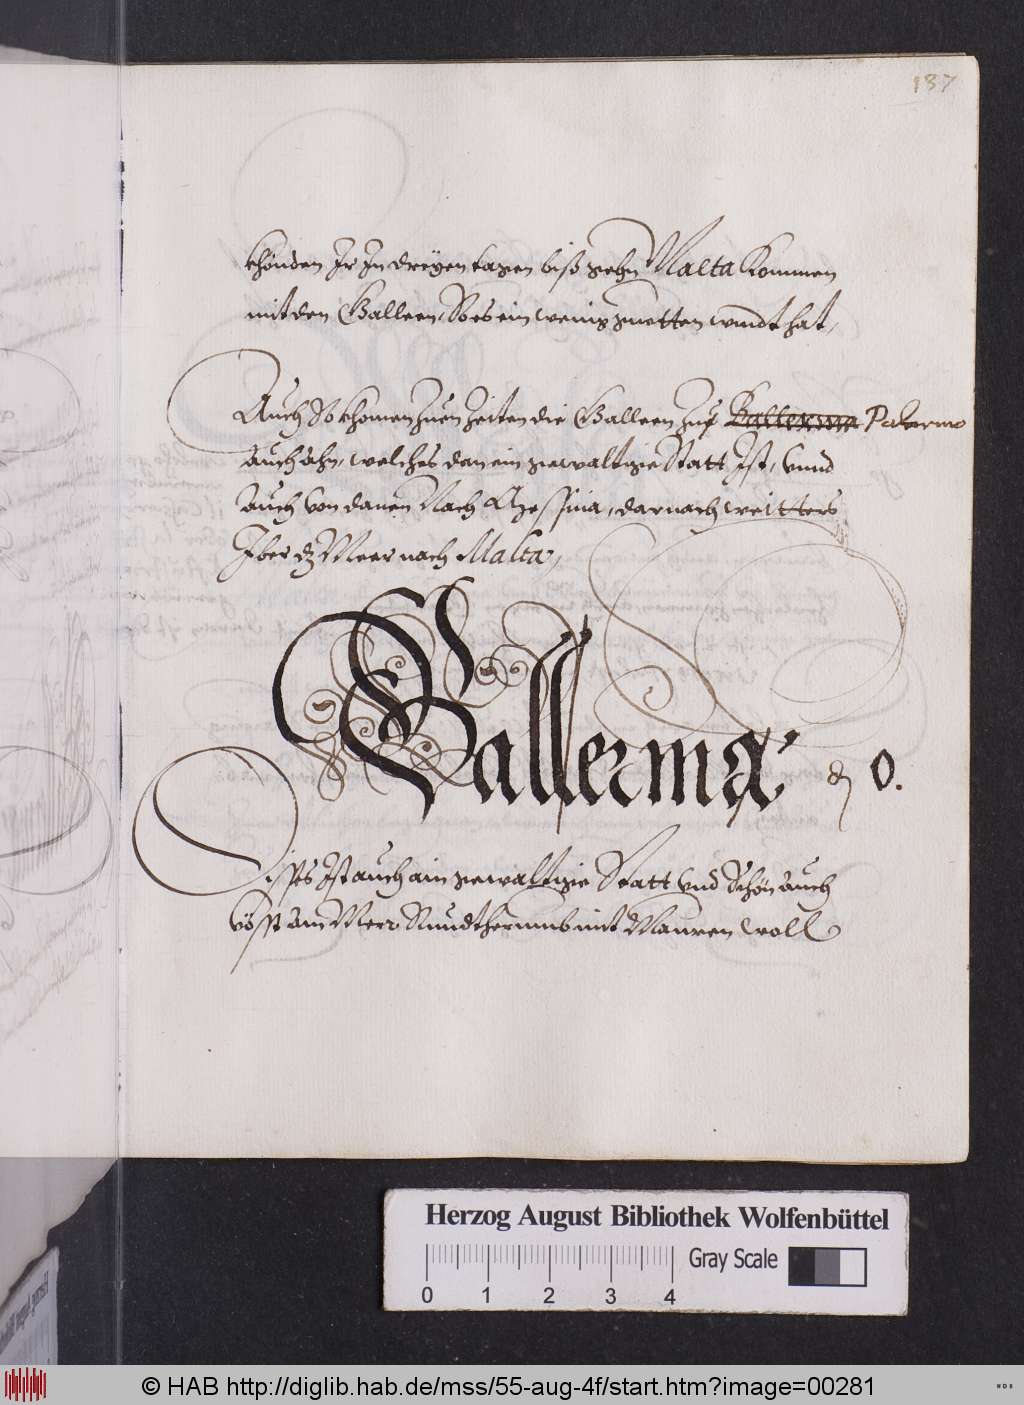 137
khönden Ir In dreÿen tagen biß gehn Malta kommen
mit den Galleen, So es ein wenig guetten wundt hat,
Auch So khomen zuen Zeiten die Galleen zue Pallerma Palermo
auch ahn, welches dan ein gewaltige Statt Ist, vnnd
auch von danen Nach Messina, darnach weitters
Iber dz Meer nach Malta,
Pallerma 0.
Disses Ist auch ain gewaltige Statt vnd Schön auch
vösst am Meer Rundtherumb mit Mauren woll
Herzog August Bibliothek Wolfenbüttel
Gray Scale
0 1 2 3 4
© HAB http://diglib.hab.de/mss/55-aug-4f/start.htm?image=00281